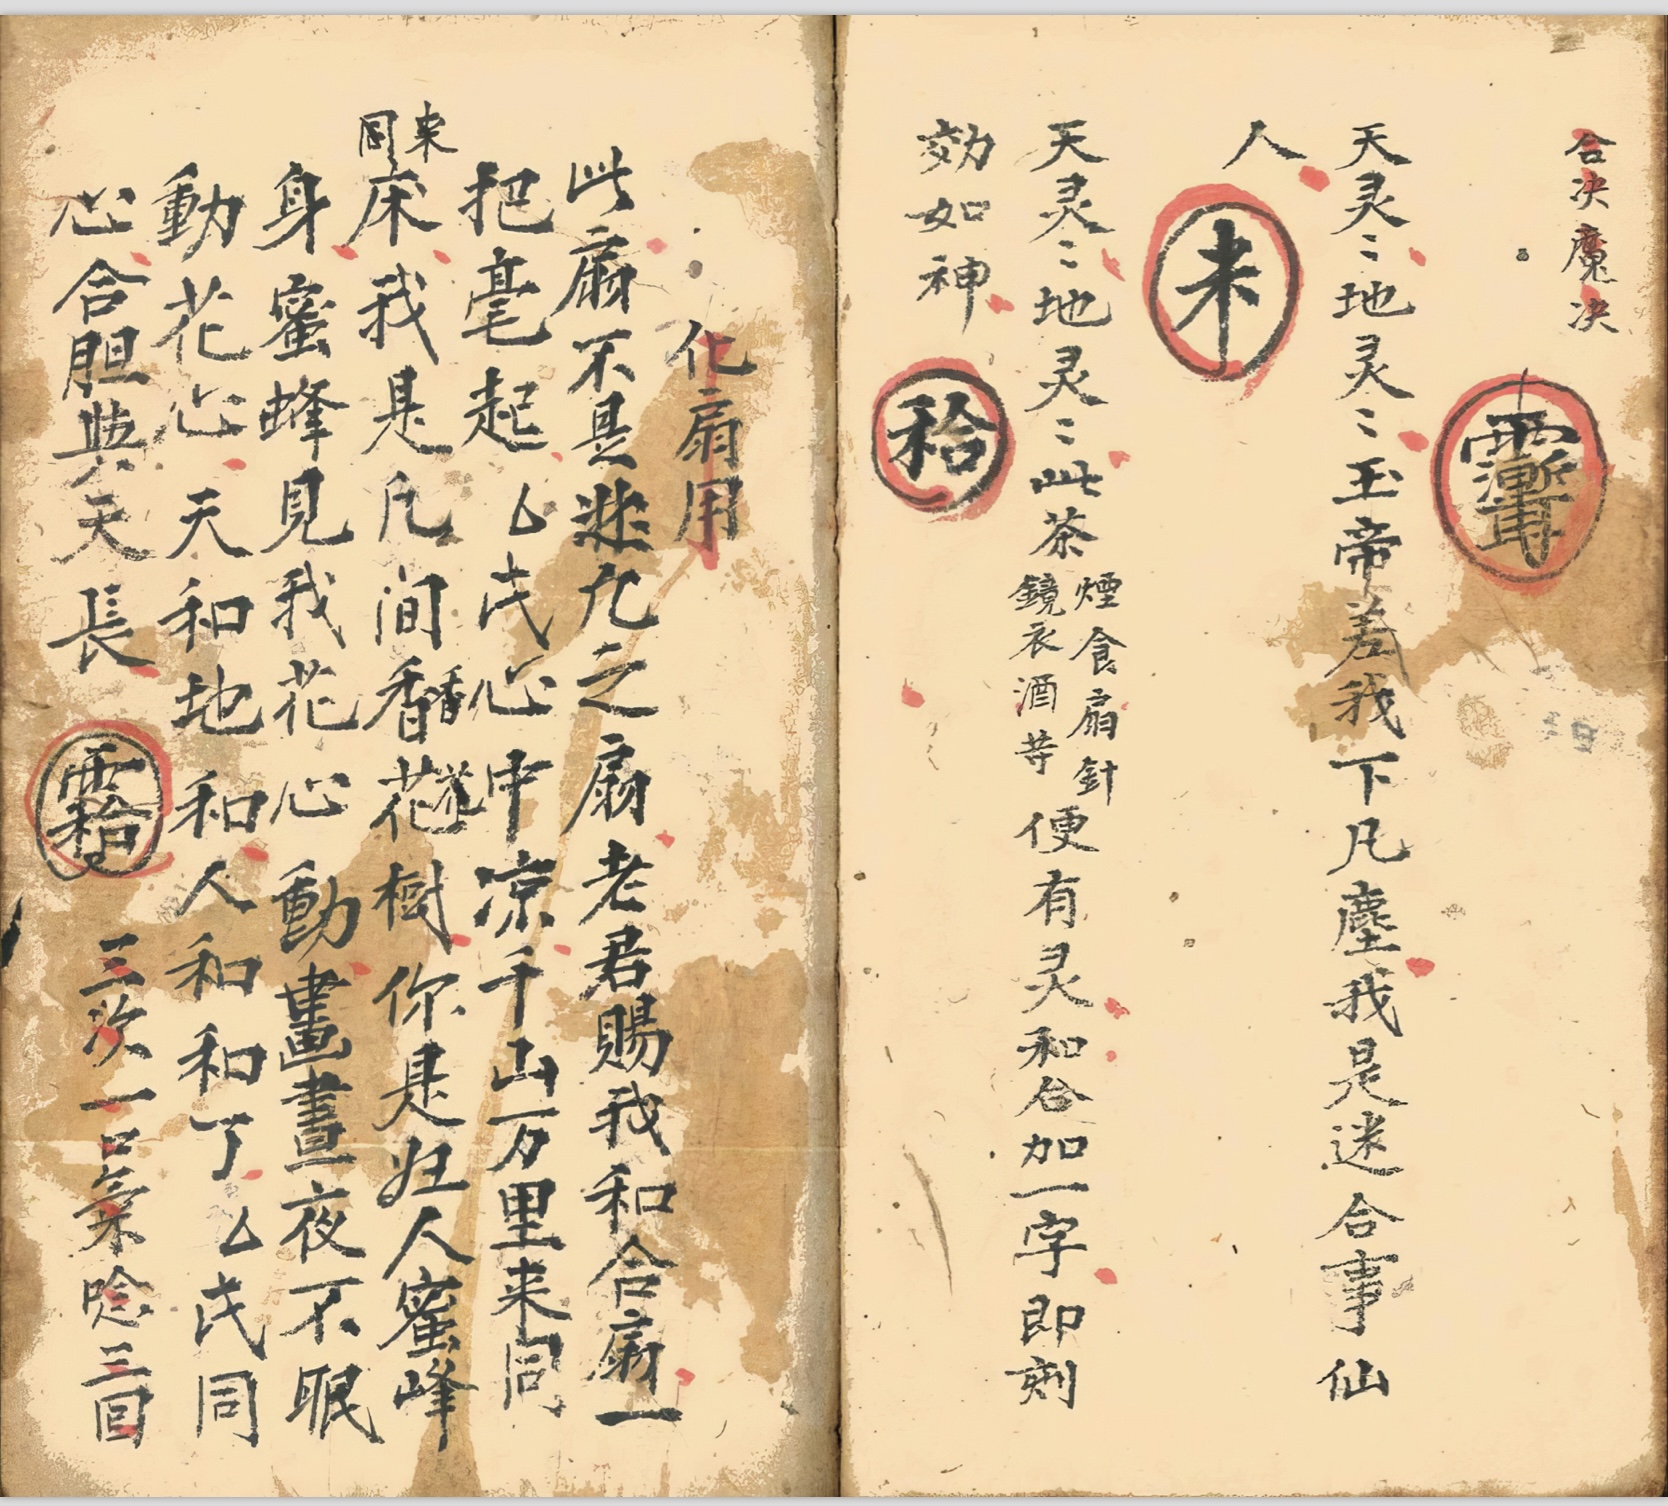 合决魔决
天灵〻地灵〻玉帝差我下凡塵我是迷合事仙
人
未
天灵〻地灵〻此茶煙食扇針鏡衣酒等便有灵和合加一字即刻
効如神
袷
化扇用
此扇不是非凡之扇老君賜我和合扇一
把毫起厶氏心中凉千山万里来同
来同
床我是凡间香香花花樹你是妇人蜜峰
身蜜蜂見我花心動畫晝夜不眠
動花心天和地和人和和了厶氏同
心合胆與天長
三次一口氣唸三囬